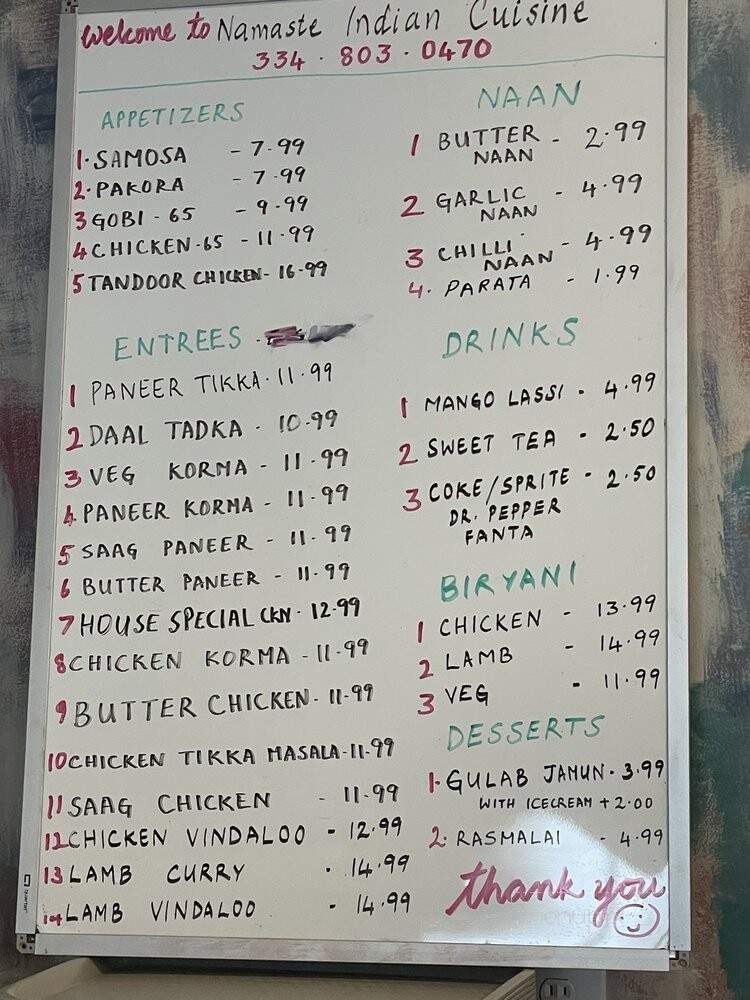 Welcome to Namaste Indian Cuisine
334 · 803 · 0470
APPETIZERS
1· SAMOSA - 7·99
2· PAKORA - 7·99
3 GOBI - 65 - 9·99
4 CHICKEN-65 - 11·99
5 TANDOOR CHICKEN- 16·99
ENTREES -
1 PANEER TIKKA· 11·99
2 DAAL TADKA - 10·99
3 VEG KORMA - 11·99
4 PANEER KORMA - 11·99
5 SAAG PANEER - 11·99
6 BUTTER PANEER - 11·99
7 HOUSE SPECIAL CKN - 12·99
8 CHICKEN KORMA - 11·99
9 BUTTER CHICKEN- 11·99
10 CHICKEN TIKKA MASALA-11·99
11 SAAG CHICKEN - 11·99
12 CHICKEN VINDALOO - 12·99
13 LAMB CURRY · 14·99
14 LAMB VINDALOO - 14·99
NAAN
1 BUTTER - 2·99
NAAN
2 GARLIC - 4·99
NAAN
3 CHILLI - 4·99
NAAN
4· PARATA - 1·99
DRINKS
1 MANGO LASSI - 4·99
2 SWEET TEA - 2·50
3 COKE/SPRITE - 2·50
DR. PEPPER
FANTA
BIRYANI
1 CHICKEN - 13·99
2 LAMB - 14·99
3 VEG - 11·99
DESSERTS
1· GULAB JAMUN · 3·99
WITH ICECREAM + 2·00
2· RASMALAI - 4·99
thank you